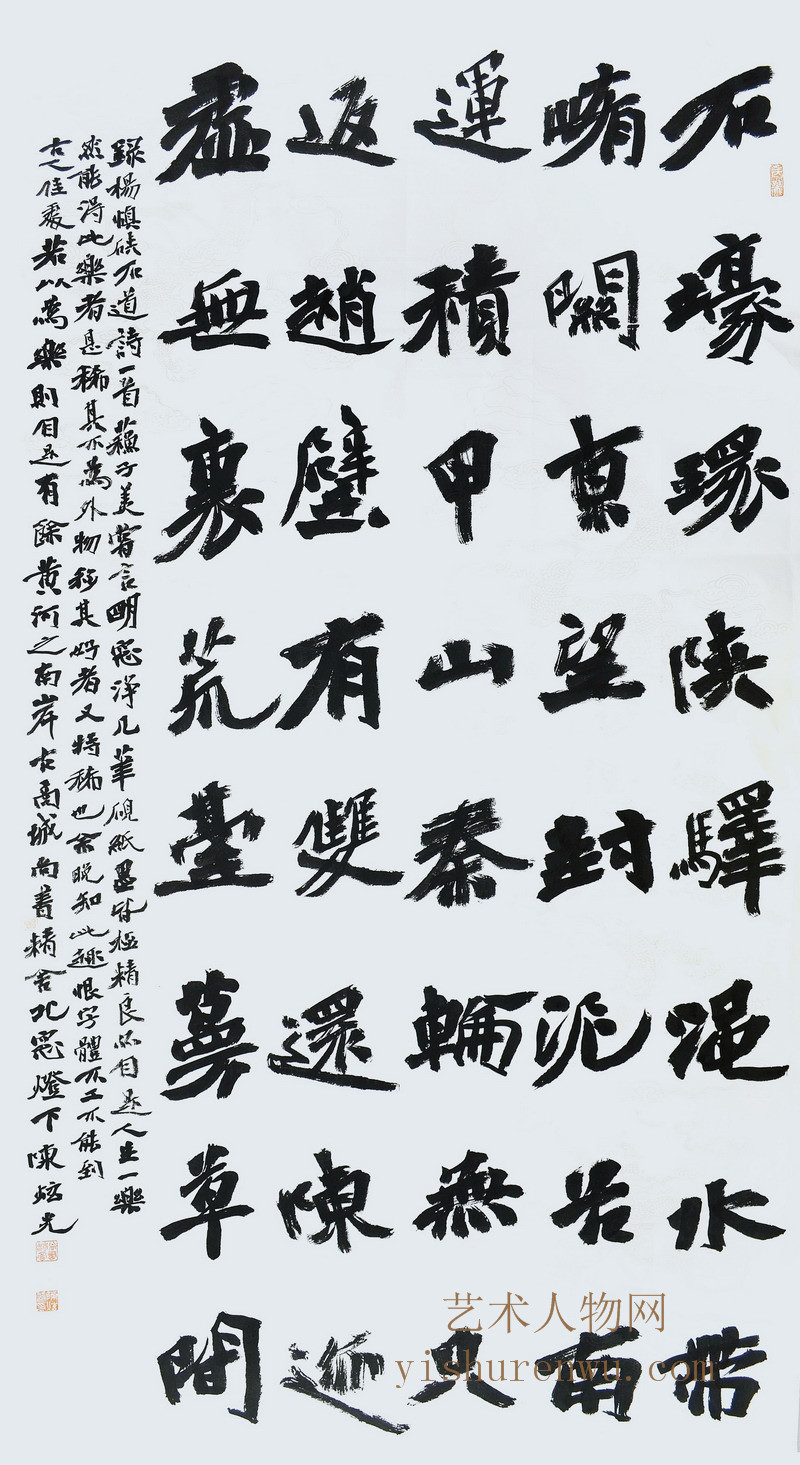 石壕環陝驛渑水帶
崤關京望封泥谷南
運積甲山秦輪無只
返趙璧有雙還陳迹
虚無裏荒臺蔓草間
錄楊慎硤石道詩一首蘇子美嘗言明窓淨几筆硯紙墨皆極精良亦自是人生一樂
然能得此樂者甚稀其不爲外物移其好者又特稀也余晚知此趣恨字體不工不能到
古人佳處若以爲樂則自足有餘黃河之南岸古禹城尚善精舍北窓燈下陳光
艺术人物网
yishurenwu.com